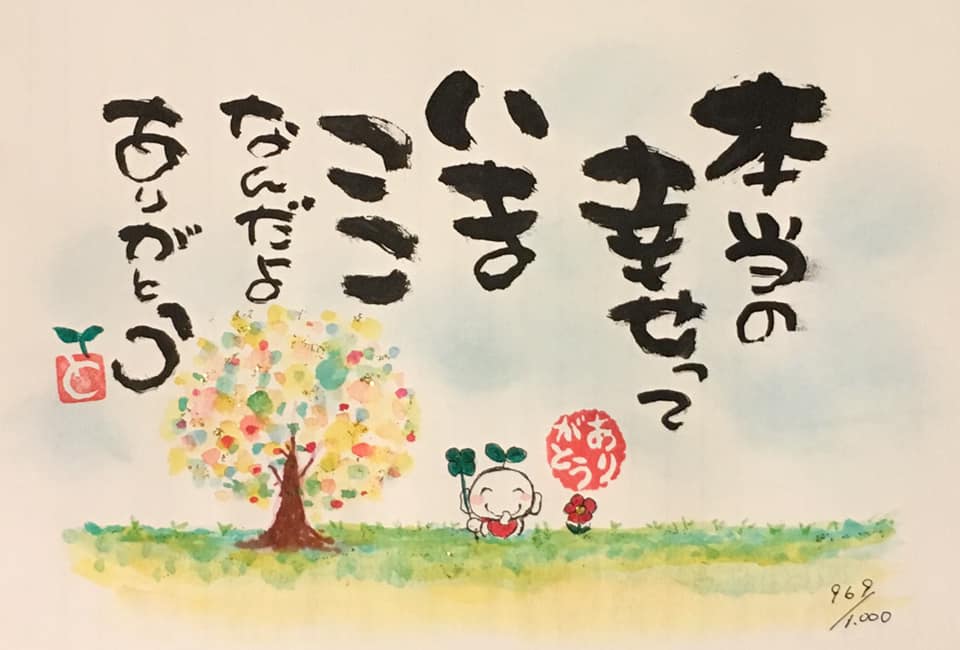 本当の
幸せって
いま
ココ
なんだよ
ありがとう
と
あり
がとう
969/1.000